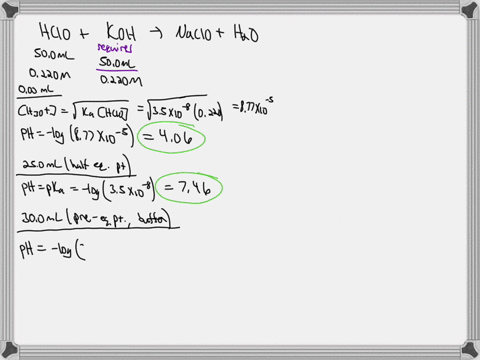 HClO + KOH → NaClO + H₂O
required
50.0mL 50.0mL
0.220M 0.220M
0.00mL
[H₃O+] = √Ka[HClO] = √3.5×10⁻⁸(0.220) = 8.77×10⁻⁵
pH = -log(8.77×10⁻⁵) = 4.06
25.0mL (half eq. pt)
pH = pKa = -log(3.5×10⁻⁸) = 7.46
30.0mL (pre-eq. pt., buffer)
pH = -log(